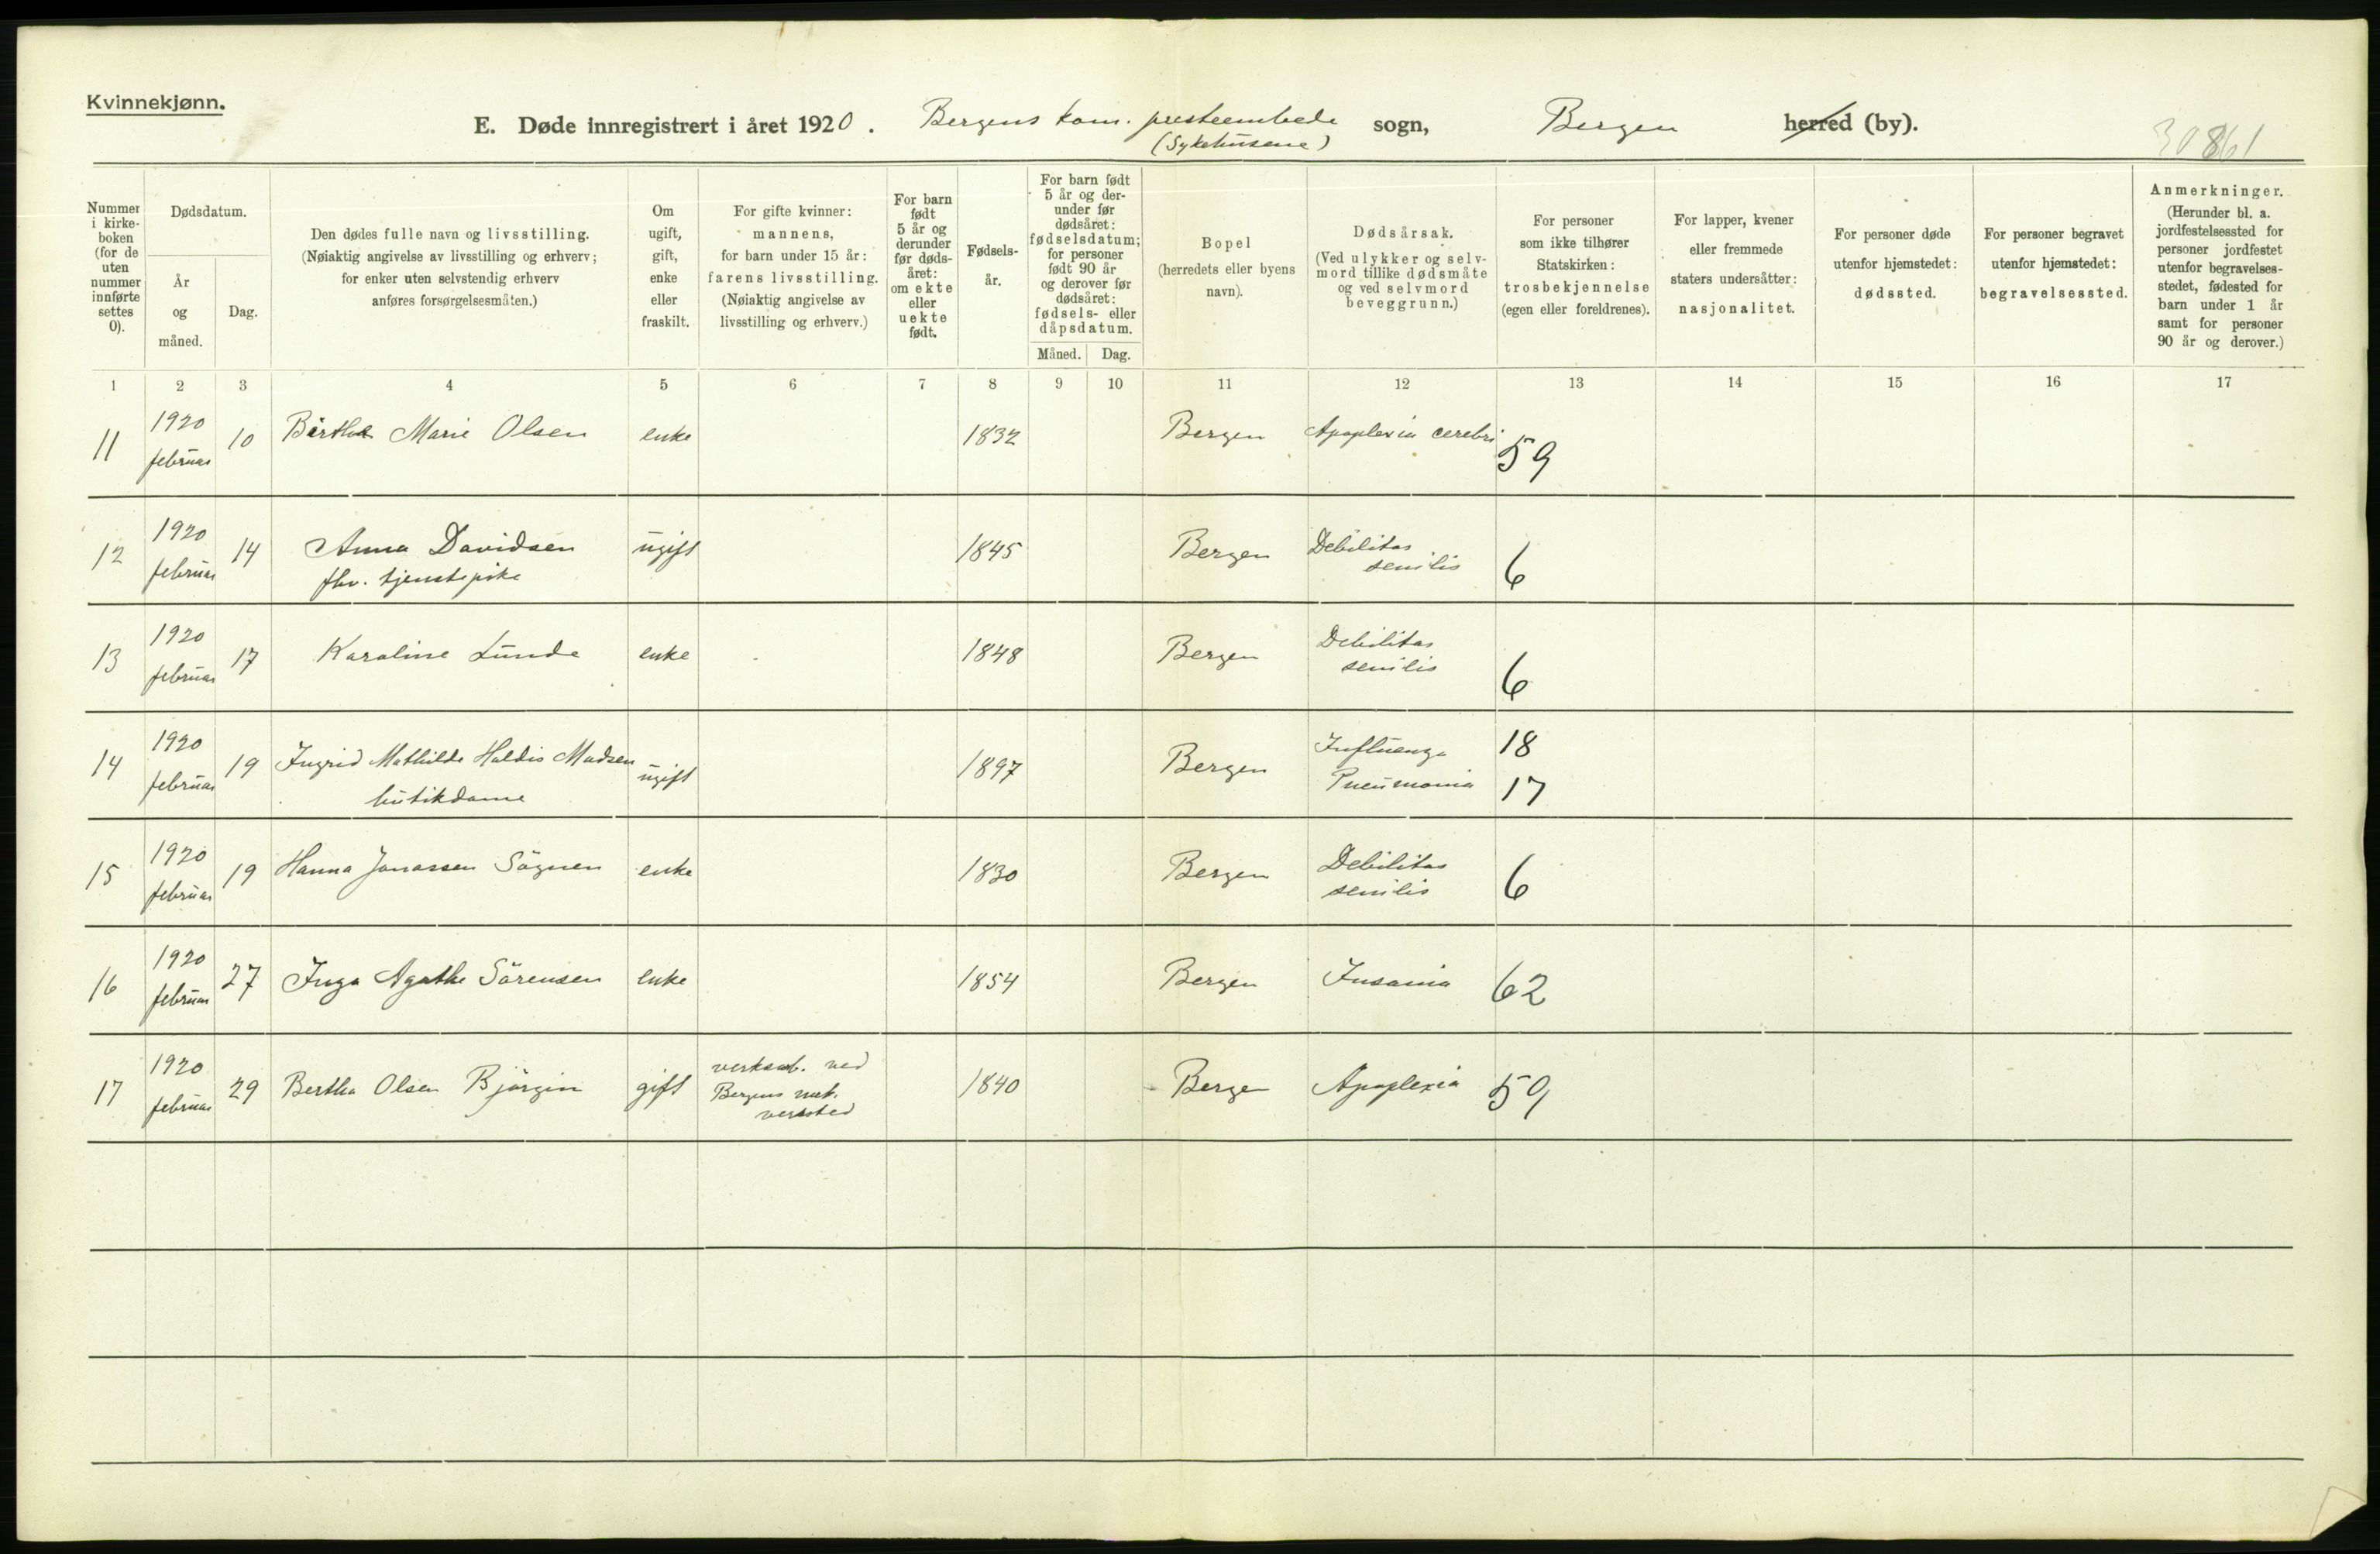 Kvinnekjønn.
E. Døde innregistrert i året 1920. Bergens kom. presteembede sogn, Bergen herred (by).
(Sykehusene)
30861
Nummer i kirke-boken (for de uten nummer innførte settes 0).
Dødsdatum.
År og måned.
Dag.
Den dødes fulle navn og livsstilling.
(Nøiaktig angivelse av livsstilling og erhverv;
for enker uten selvstendig erhverv
anføres forsørgelsesmåten.)
Om ugift, gift, enke eller fraskilt.
For gifte kvinner:
mannens,
for barn under 15 år:
farens livsstilling.
(Nøiaktig angivelse av
livsstilling og erhverv.)
For barn født 5 år og derunder før døds-året: om ekte eller uekte født.
Fødsels-år.
For barn født 5 år og der-under før dødsåret: fødselsdatum; for personer født 90 år og derover før dødsåret: fødsels- eller dåpsdatum.
Måned. Dag.
Bopel
(herredets eller byens
navn).
Dødsårsak.
(Ved ulykker og selv-
mord tillike dødsmåte
og ved selvmord
beveggrunn.)
For personer
som ikke tilhører
Statskirken:
trosbekjennelse
(egen eller foreldrenes).
For lapper, kvener
eller fremmede
staters undersåtter:
nasjonalitet.
For personer døde
utenfor hjemstedet:
dødssted.
For personer begravet
utenfor hjemstedet:
begravelsessted.
Anmerkninger.
(Herunder bl. a.
jordfestelsessted for
personer jordfestet
utenfor begravelses-
stedet, fødested for
barn under 1 år
samt for personer
90 år og derover.)
1 2 3 4 5 6 7 8 9 10 11 12 13 14 15 16 17
11 1920 februar 10 Berthe Marie Olsen enke 1832 Bergen Apoplexia cerebri 59
12 1920 februar 14 Anna Davidsen ugift 1845 Bergen Debilitas senilis 6
fhv. tjenstepike
13 1920 februar 17 Karoline Lunde enke 1848 Bergen Debilitas senilis 6
14 1920 februar 19 Ingrid Mathilde Haldis Madsen ugift 1897 Bergen Influenza 18
butikdame Pneumonia 17
15 1920 februar 19 Hanna Jonassen Sögnen enke 1830 Bergen Debilitas senilis 6
16 1920 februar 27 Inga Agathe Sörensen enke 1854 Bergen Insania 62
17 1920 februar 29 Bertha Olsen Björgin gift verksarb. ved Bergens mek. verksted 1840 Bergen Apoplexia 59